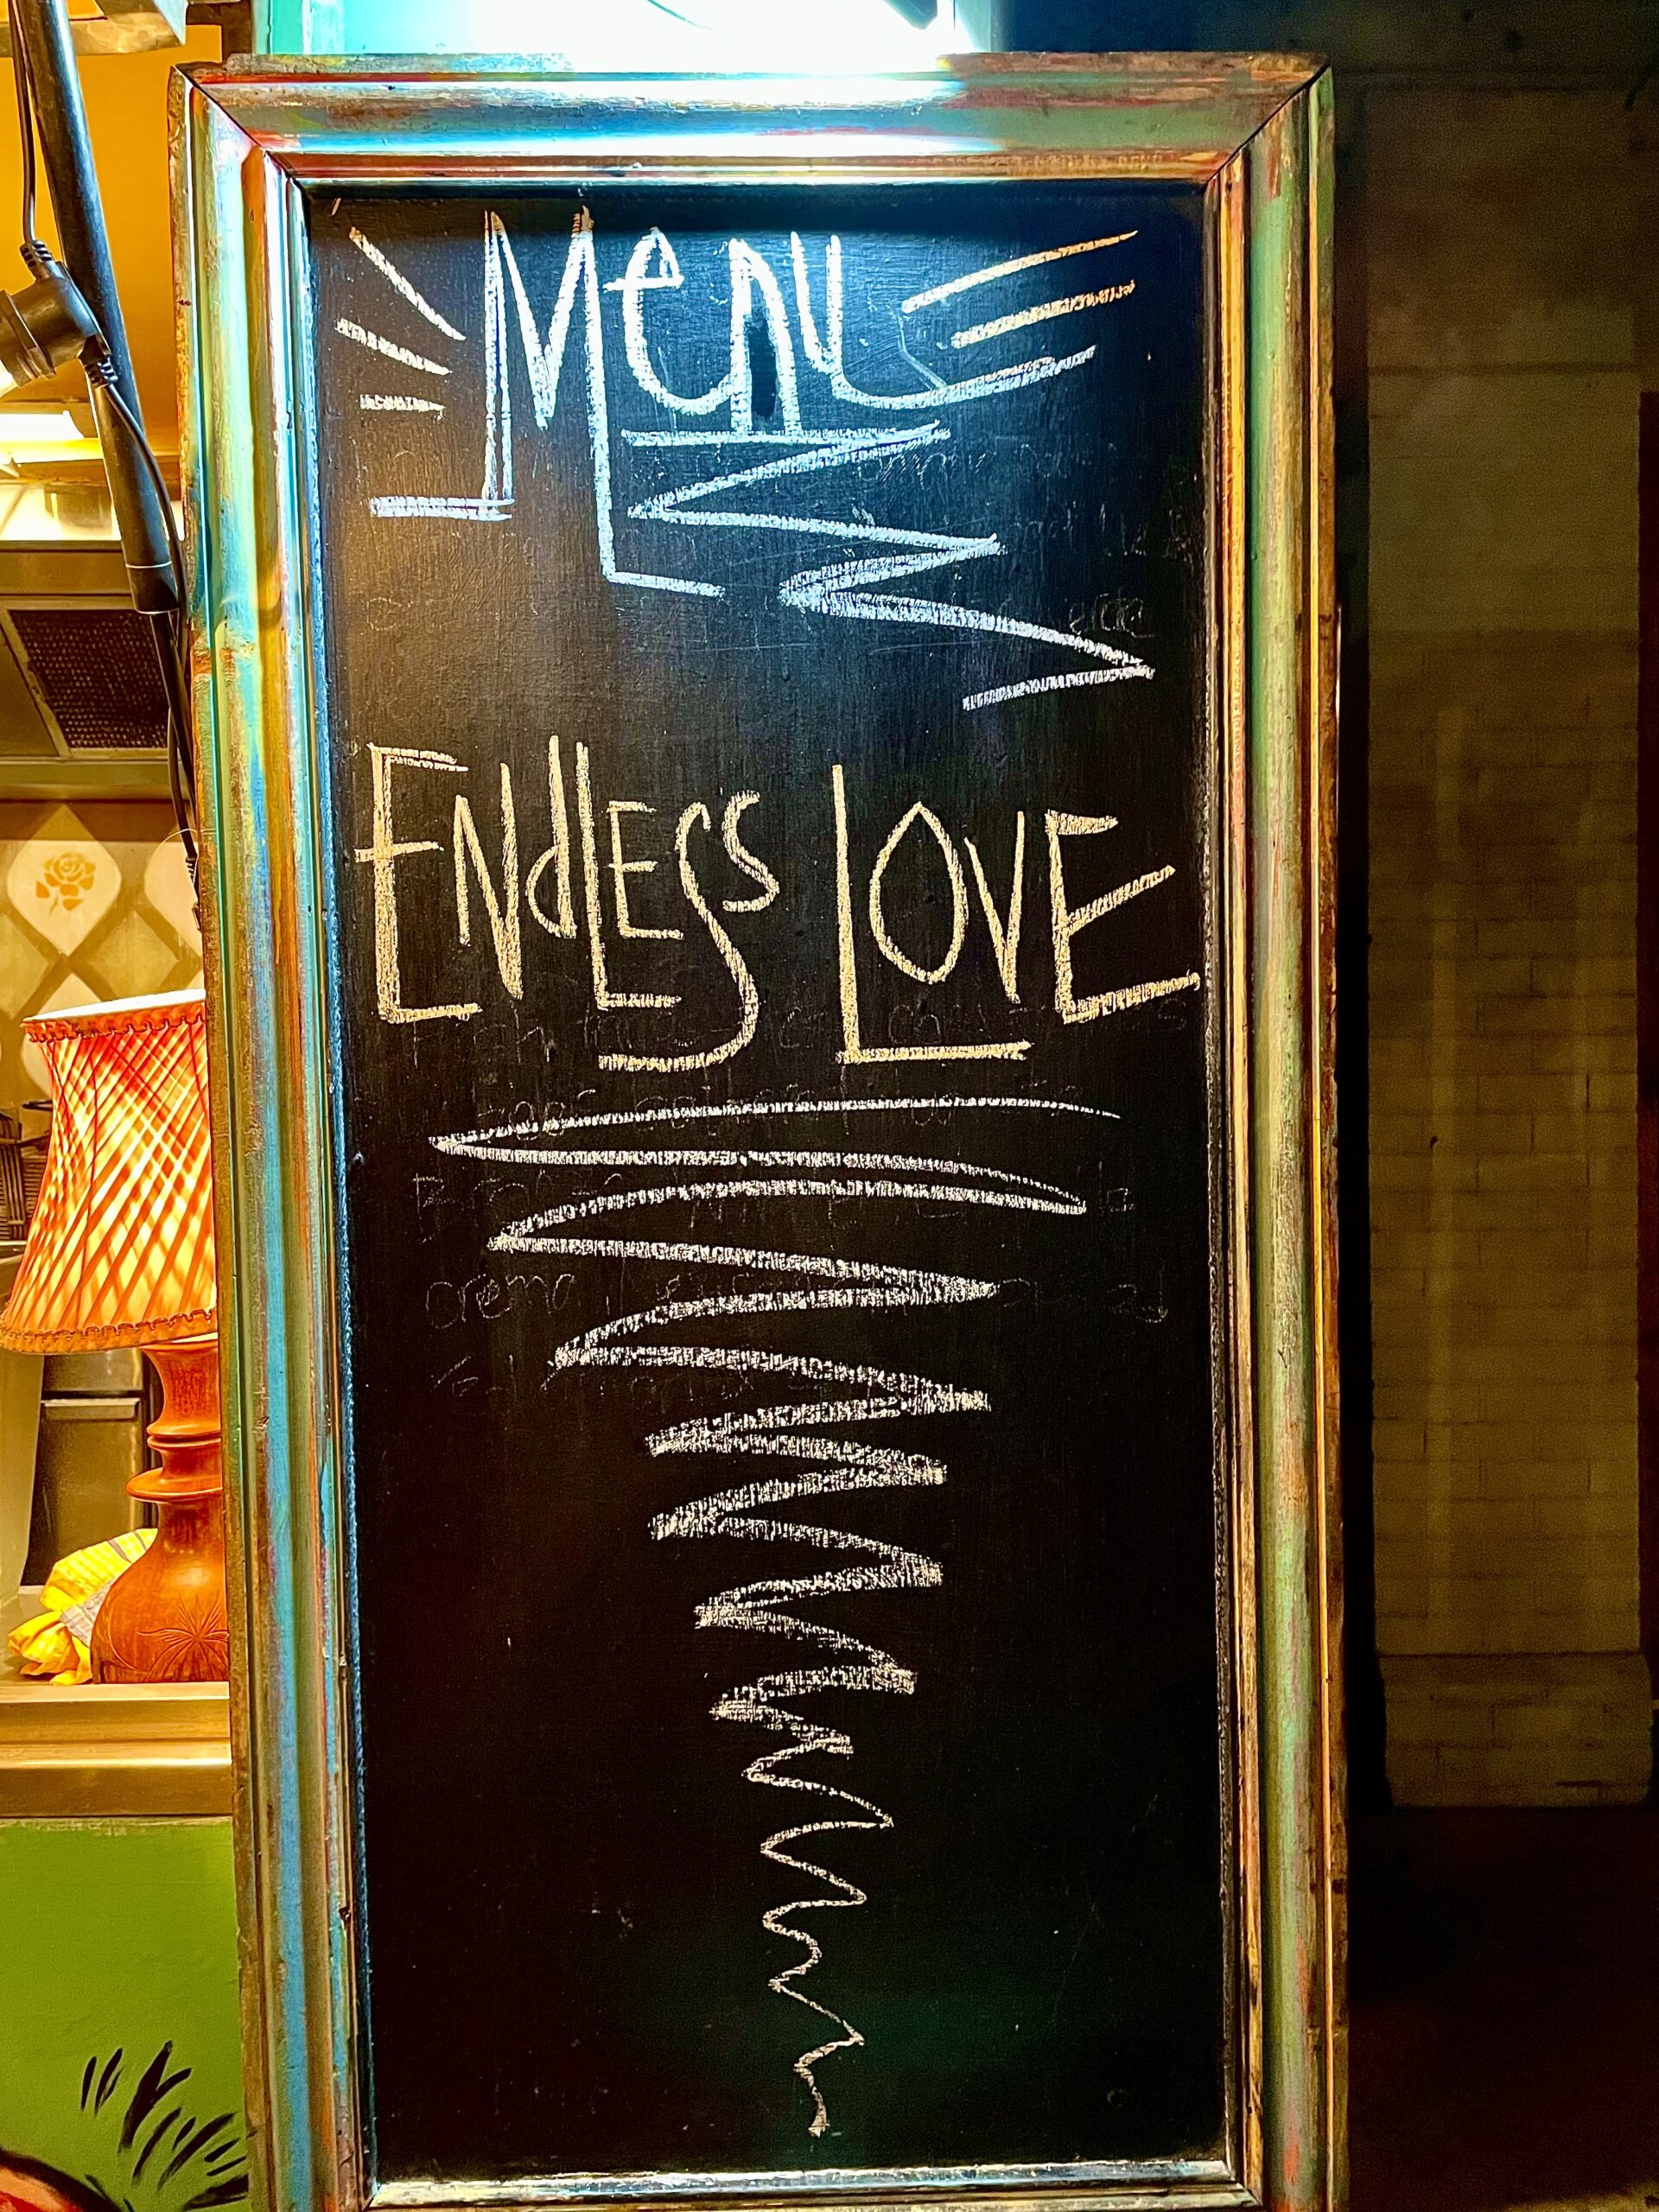 Menu
ENdLESS LOVE